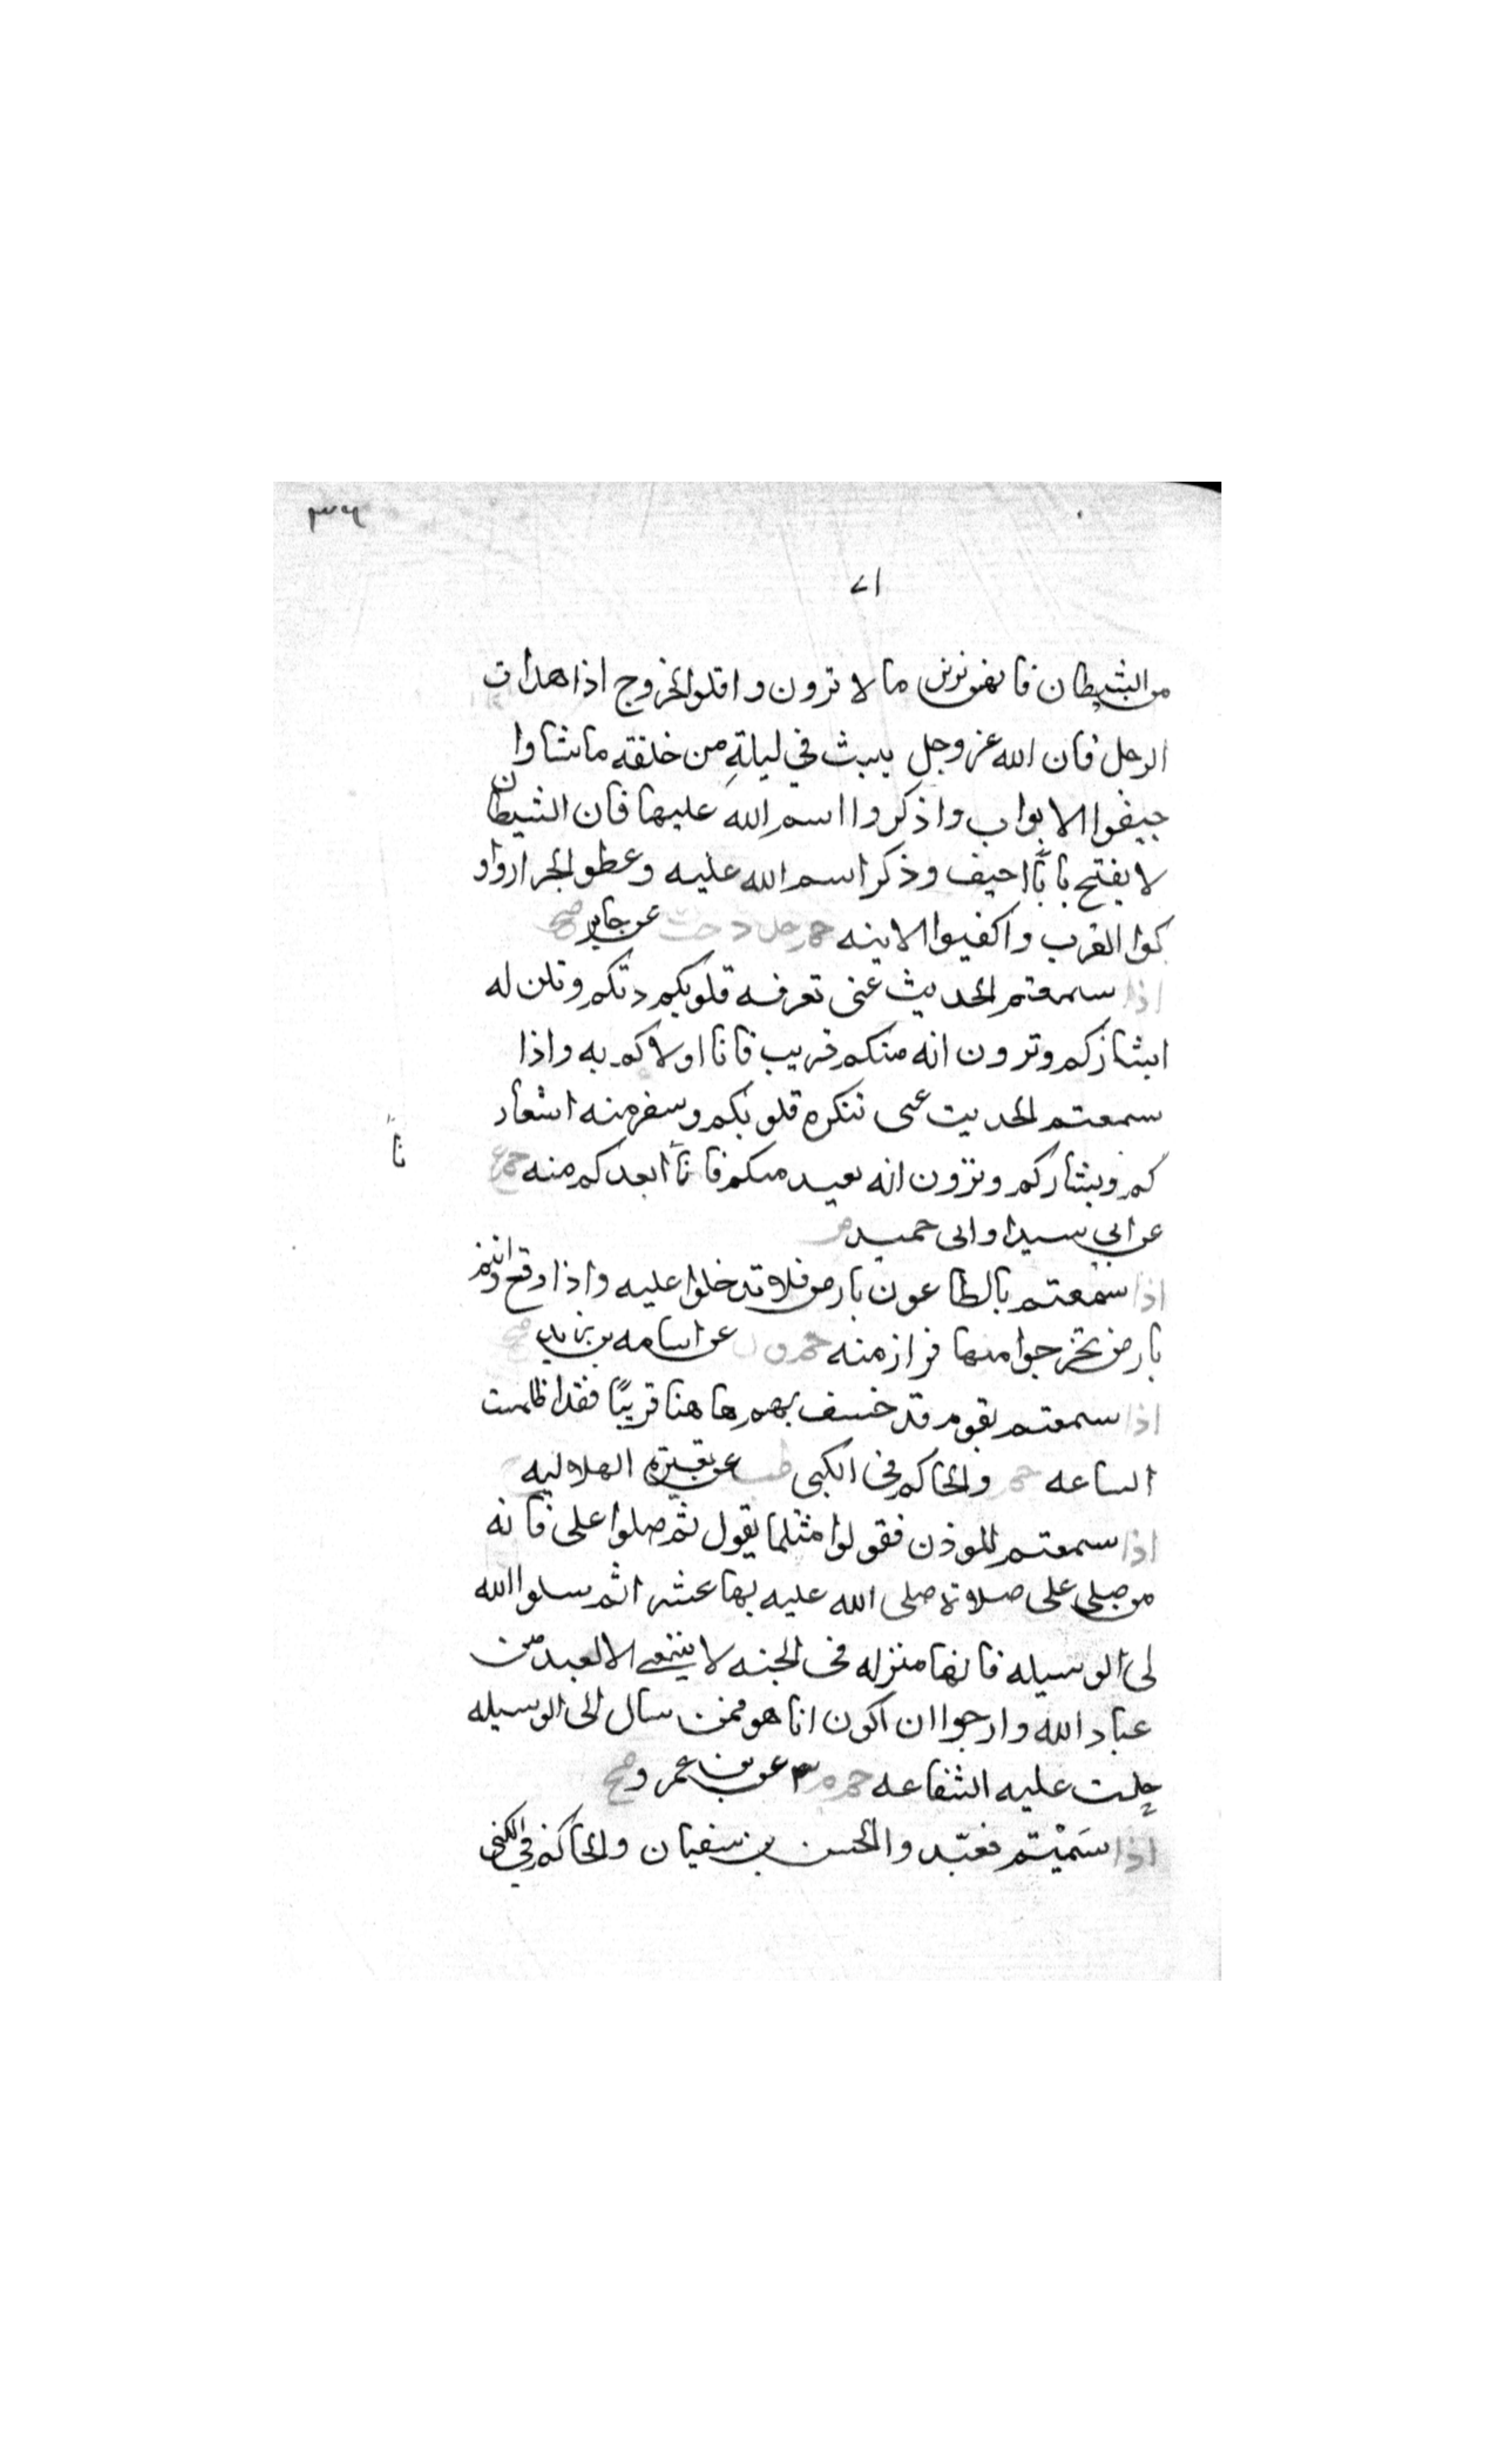 ٣٦
٤١
من الشيطان فانهن يرون ما لا ترون واقلوا الخروج اذا هدات
الرجل فان الله عز وجل يبث في ليلةٍ من خلقه ما يشا وا
جيفوا الابواب واذكروا اسم الله عليها فان الشيطان
لا يفتح باباً اجيف وذكر اسم الله عليه وغطوا الجرار واو
كوا القرب واكفيوا الانيه حم خد د حب ك عن جابر صح
اذا سمعتم الحديث عنى تعرفه قلوبكم وتلن له
ابشاركم وترون انه منكم قريب فانا اولاكم به واذا
سمعتم الحديث عنى تنكره قلوبكم وتنفر منه اشعار
كم وبشاركم وترون انه بعيد منكم فانا ابعدكم منه حم ع
عن ابي سيد او ابى حميد
اذا سمعتم بالطاعون بارض فلا تدخلوا عليه واذا وقع وانتم
بارض تخرجوا منها فرار منه حم ق ن عن اسامه بن زيد صح
اذا سمعتم بقوم قد خسف بهم هاهنا قريبًا فقد اظلمت
الساعه حم والحاكم في الكنى طب عن بقيره الهلاليه
اذا سمعتم الموذن فقولوا مثلما يقول ثم صلوا على فانه
من صلى على صلاة صلى الله عليه بها عشرا ثم سلوا الله
لى الوسيله فانها منزله في الجنه لا ينبغي الا لعبد من
عباد الله وارجوا ان اكون انا هو فمن سال لى الوسيله
حلت عليه الشفاعه حم م ٣ عن بن عمرو صح
اذا سَمَّيْتم فعبّد والحسن بن سفيان والحاكم في الكنى
ناً